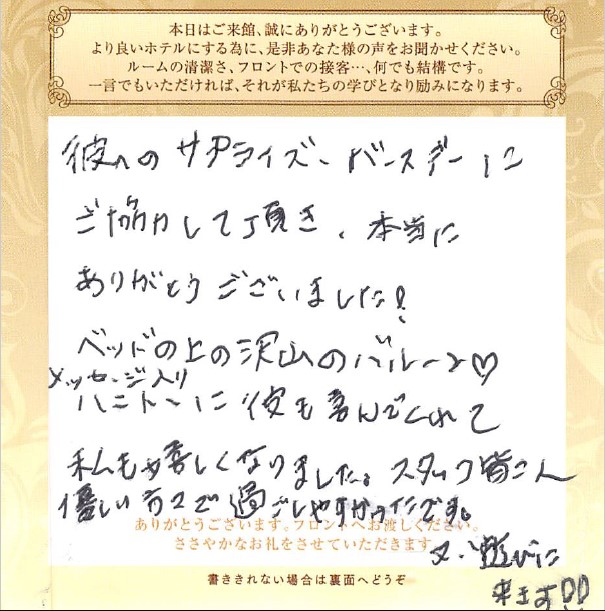 本日はご来館、誠にありがとうございます。
より良いホテルにする為に、是非あなた様の声をお聞かせください。
ルームの清潔さ、フロントでの接客…、何でも結構です。
一言でもいただければ、それが私たちの学びとなり励みになります。
彼へのサプライズ・バースデーに
ご協力して頂き、本当に
ありがとうございました!
ベッドの上の沢山のバルーン♡
メッセージ入り
ハニトーに彼も喜んでくれて
私も嬉しくなりました。スタッフ皆さん
優しい方々で過ごしやすかったです。
ありがとうございます。フロントへお渡しください。
ささやかなお礼をさせていただきます
又、遊びに
来ます
書ききれない場合は裏面へどうぞ